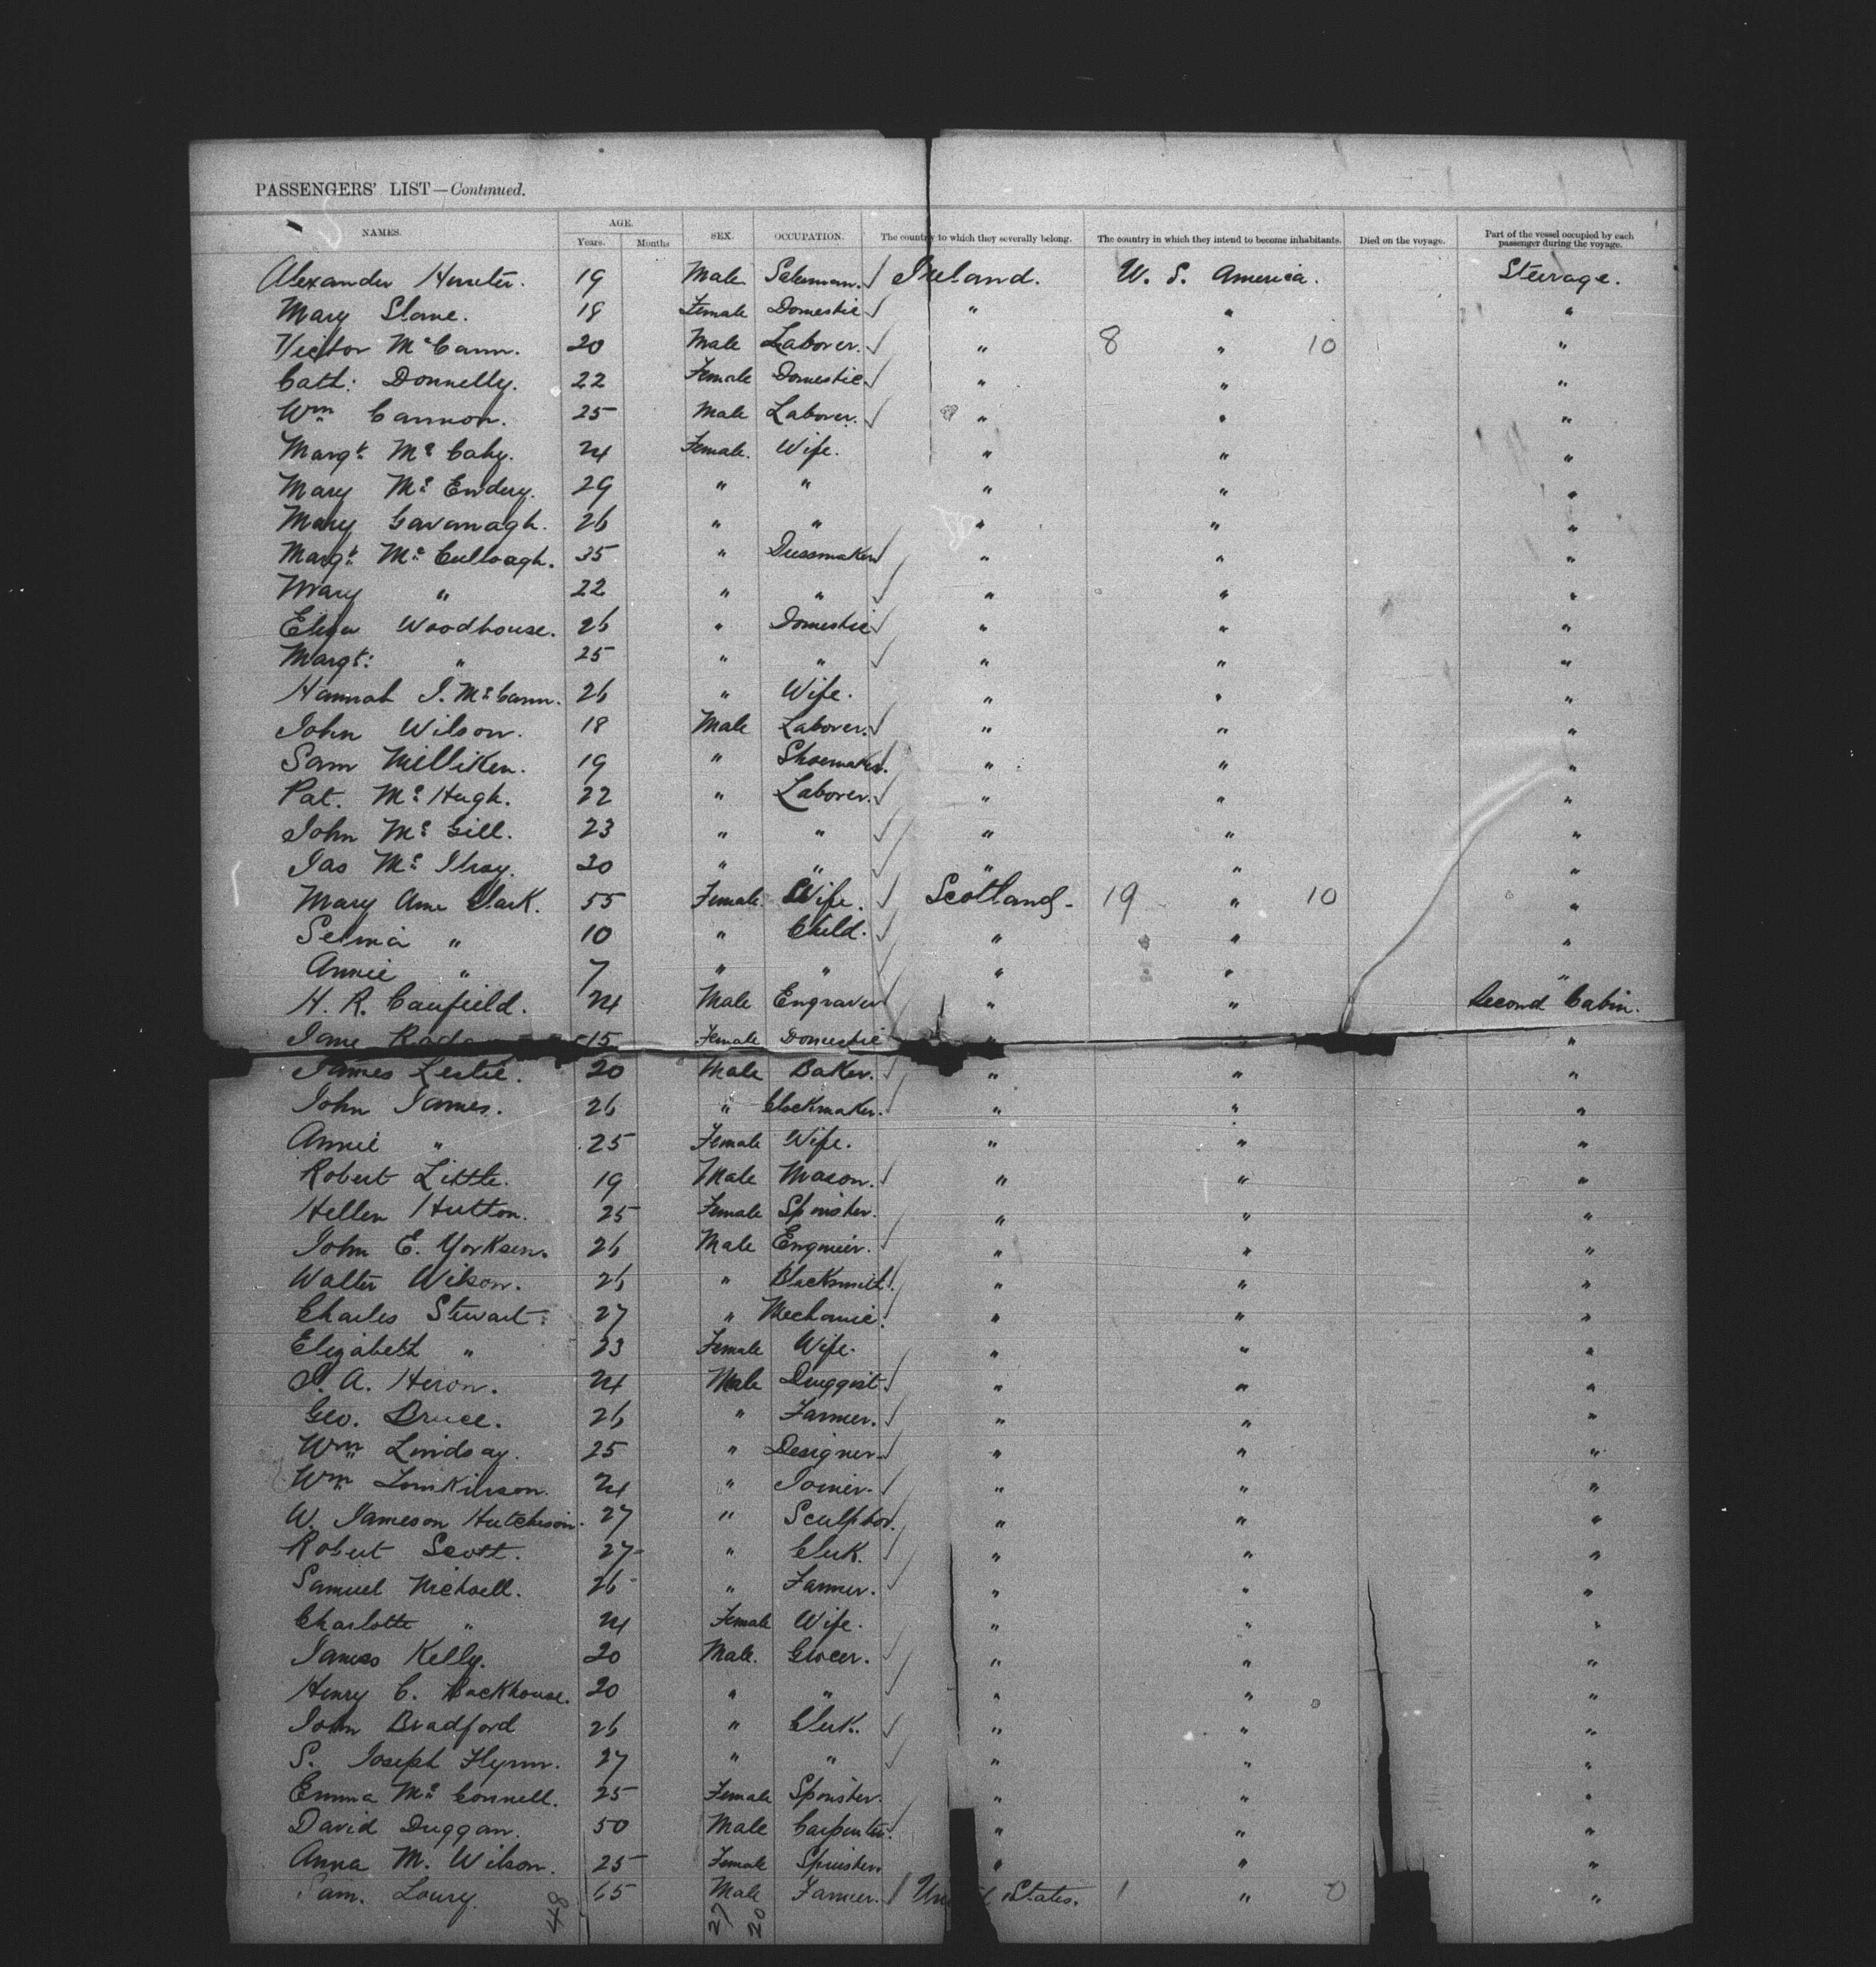 PASSENGERS' LIST—Continued.
NAMES. AGE. Years. Months SEX. OCCUPATION. The country to which they severally belong. The country in which they intend to become inhabitants. Died on the voyage. Part of the vessel occupied by each passenger during the voyage.
Alexander Hunter. 19 Male Ireland. U. S. America. Steerage.
Mary Slane. 18 Female Domestic " " "
Victor McCann. 20 Male Laborer. " 8 " 10 "
Cath: Donnelly. 22 Female Domestic. " " "
Wm Cannon. 25 Male Laborer. " " "
Margt. Mc Cahy. 24 Female. Wife. " " "
Mary Mc Endry. 29 " " " " "
Mary Cavanagh. 26 " " " " "
Margt. Mc Cullough. 35 " Dressmaker " " "
Mary " 22 " " " " "
Eliza Woodhouse. 26 " Domestic " " "
Margt: " 25 " " " " "
Hannah J. McCann. 26 " Wife. " " "
John Wilson. 18 Male Laborer. " " "
Sam Milliken. 19 " Shoemaker. " " "
Pat. Mc Hugh. 22 " Laborer. " " "
John Mc Gill. 23 " " " " "
Jas Mc Ilroy. 20 " " " " "
Mary Ann Clark. 55 Female. Wife. Scotland. 19 " 10 "
Selma " 10 " Child. " " "
Annie " 7 " " " " "
H. R. Caufield. 24 Male Engraver " " Second Cabin.
Jane 15 Female Domestic " " "
James Leslie. 20 Male Baker. " " "
John James. 26 " Clockmaker. " " "
Annie " 25 Female Wife. " " "
Robert Little. 19 Male Mason. " " "
Hellen Hutton. 25 Female Spinster. " " "
John E. Yorksen. 26 Male Engineer. " " "
Walter Wilson. 26 " Blacksmith. " " "
Charles Stewart. 27 " Mechanic. " " "
Elizabeth " 23 Female Wife. " " "
J. A. Heron. 24 Male Druggist. " " "
Geo. Bruce. 26 " Farmer. " " "
Wm Lindsay. 25 " Designer. " " "
Wm Tomkinson. 24 " Joiner. " " "
W. Jameson Hutchison. 27 " Sculptor. " " "
Robert Scott. 27 " Clerk. " " "
Samuel Nicholl. 26 " Farmer. " " "
Charlotte " 24 Female Wife. " " "
James Kelly. 20 Male. Grocer. " " "
Henry C. Hackhouse. 20 " " " " "
John Bradford 26 " Clerk. " " "
S. Joseph Flynn. 27 " " " " "
Emma Mc Connell. 25 Female Spinster. " " "
David Duggan. 50 Male Carpenter. " " "
Anna M. Wilson. 25 Female Spinster " " "
Sam. Loury. 65 Male Farmer. States. 1 " 0 "
48 27 20